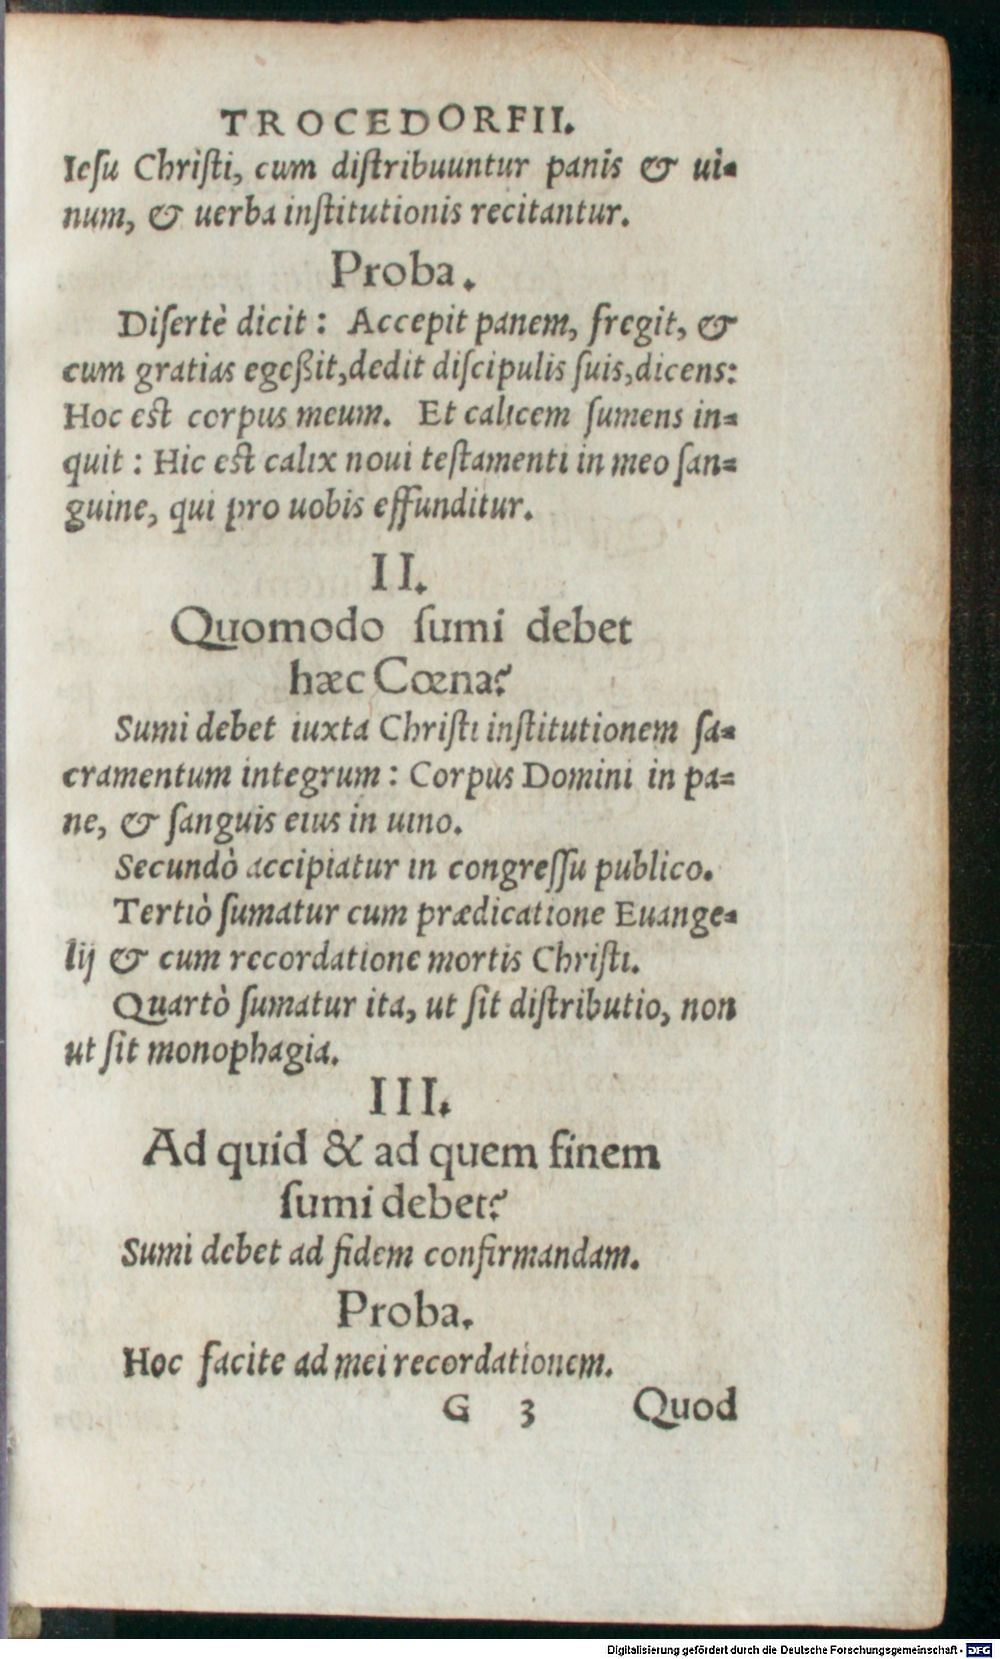 TROCEDORFII.
Iesu Christi, cum distribuuntur panis & ui-
num, & uerba institutionis recitantur.
Proba.
Disertè dicit: Accepit panem, fregit, &
cum gratias egeßit, dedit discipulis suis, dicens:
Hoc est corpus meum. Et calicem sumens in-
quit: Hic est calix noui testamenti in meo san-
guine, qui pro uobis effunditur.
II.
Quomodo sumi debet
hæc Cœna?
Sumi debet iuxta Christi institutionem sa-
cramentum integrum: Corpus Domini in pa-
ne, & sanguis eius in uino.
Secundò accipiatur in congressu publico.
Tertiò sumatur cum prædicatione Euange-
lij & cum recordatione mortis Christi.
Quartò sumatur ita, ut sit distributio, non
ut sit monophagia.
III.
Ad quid & ad quem finem
sumi debet?
Sumi debet ad fidem confirmandam.
Proba.
Hoc facite ad mei recordationem.
G 3 Quod
Digitalisierung gefördert durch die Deutsche Forschungsgemeinschaft - DFG